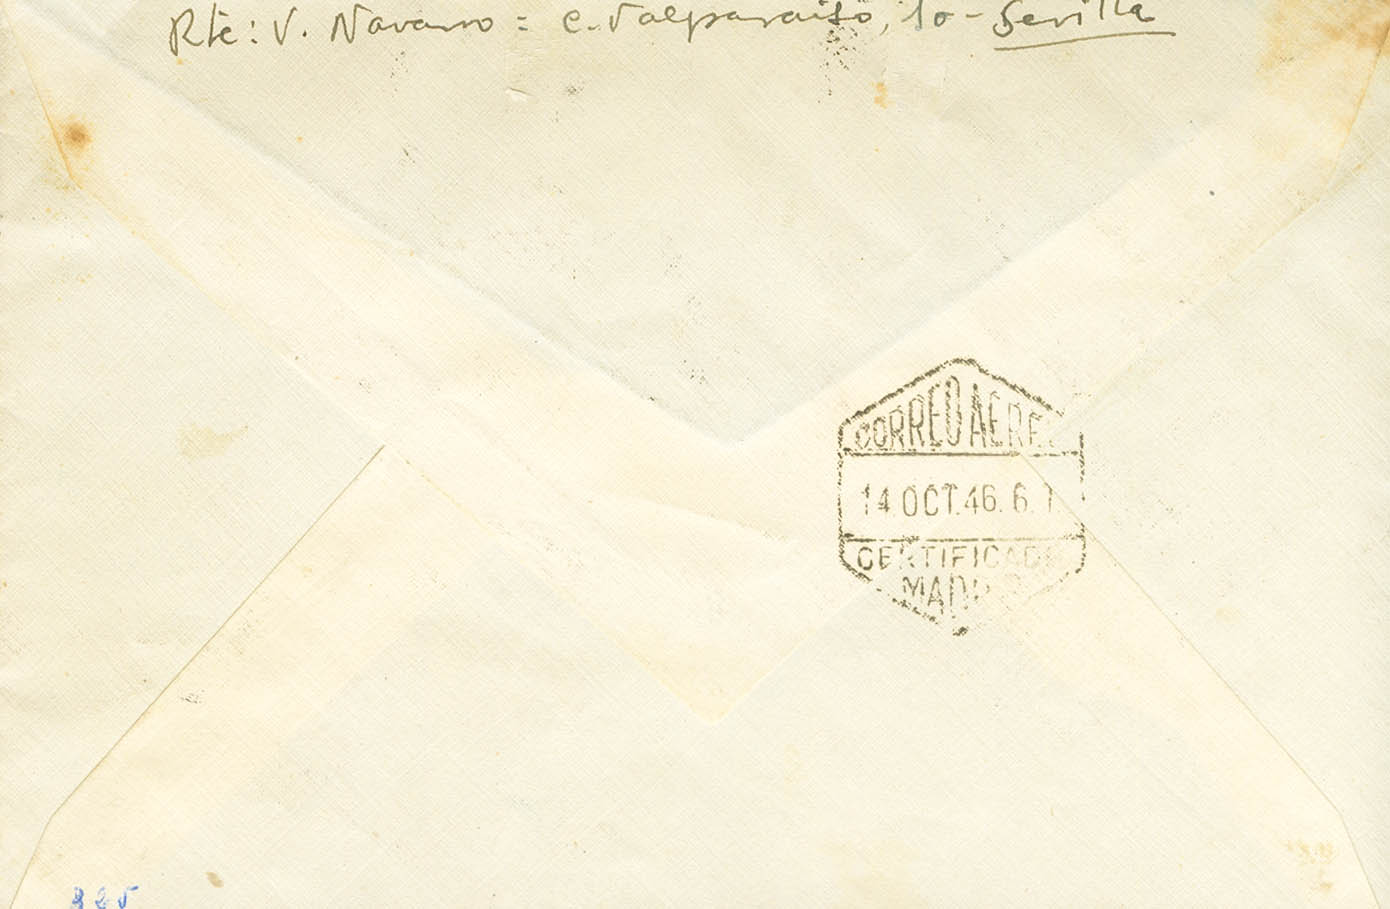 Rte: V. Navarro = c. Valparaiso, 10 - Sevilla
CORREO AERE
14.OCT.46. 6. T
CERTIFICADO
MADRID
325